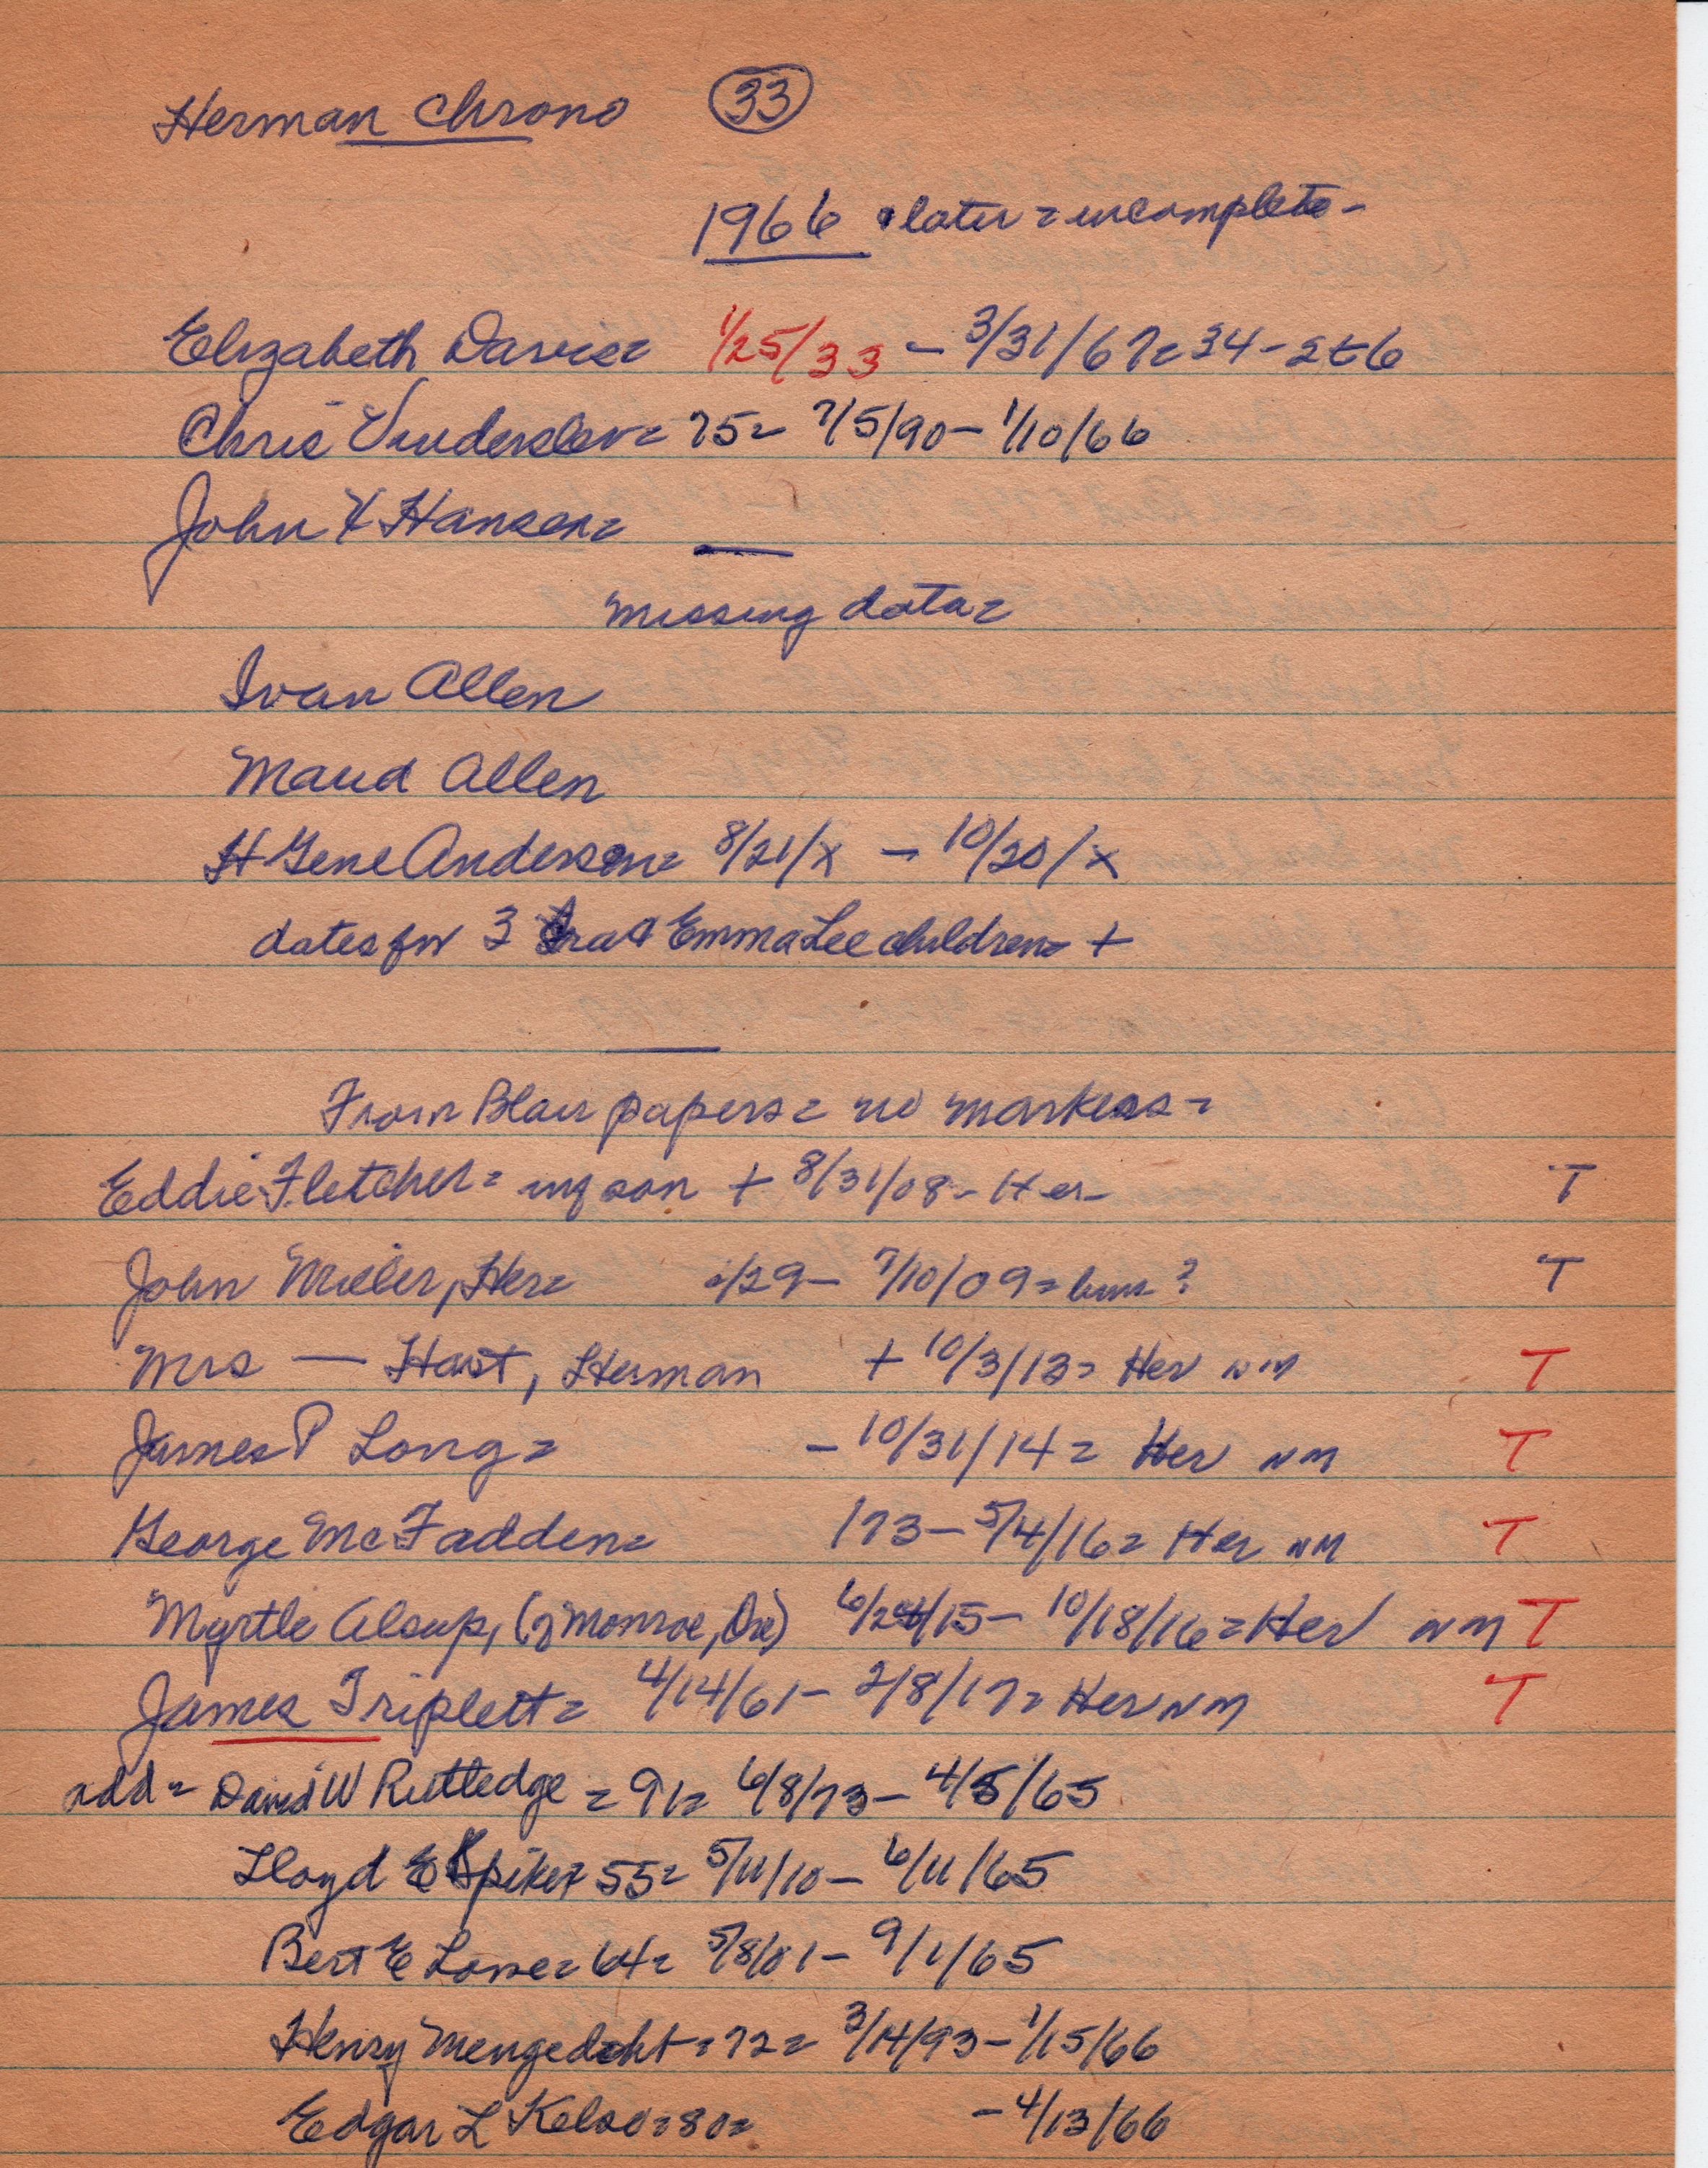 Herman Chrono 33
1966 & later = incomplete -
Elizabeth Davis = 1/25/33 - 3/31/67 = 34-2-6
Chris = 75 = 7/5/90 - 1/10/66
John Y Hansen =
missing data =
Ivan Allen
Maud Allen
H Gene Anderson = 8/21/x - 10/20/x
dates for 3 Emma Lee children = +
From Blair papers = no markers =
Eddie Fletcher = inf son + 8/31/08 - Her -
John Miller, Her = /29 - 7/10/09 = bur ?
Mrs — Hast, Herman + 10/3/13 = Her NM T
James P Long = - 10/31/14 = Her NM T
George McFadden = 173 - 5/4/16 = Her NM T
Myrtle Alsup, (of Monroe, Ore) 6/24/15 - 10/18/16 = Her NM T
James Triplett = 4/14/61 - 2/8/17 = Her NM T
add = David W Rutledge = 91 = 6/8/73 - 4/5/65
Lloyd E Spiker 55 = 5/11/10 - 6/11/65
Bert E Lowe = 64 = 5/8/01 - 9/1/65
Henry Mengedoht = 72 = 3/14/93 - 1/15/66
Edgar L Kelso = 80 = - 4/13/66